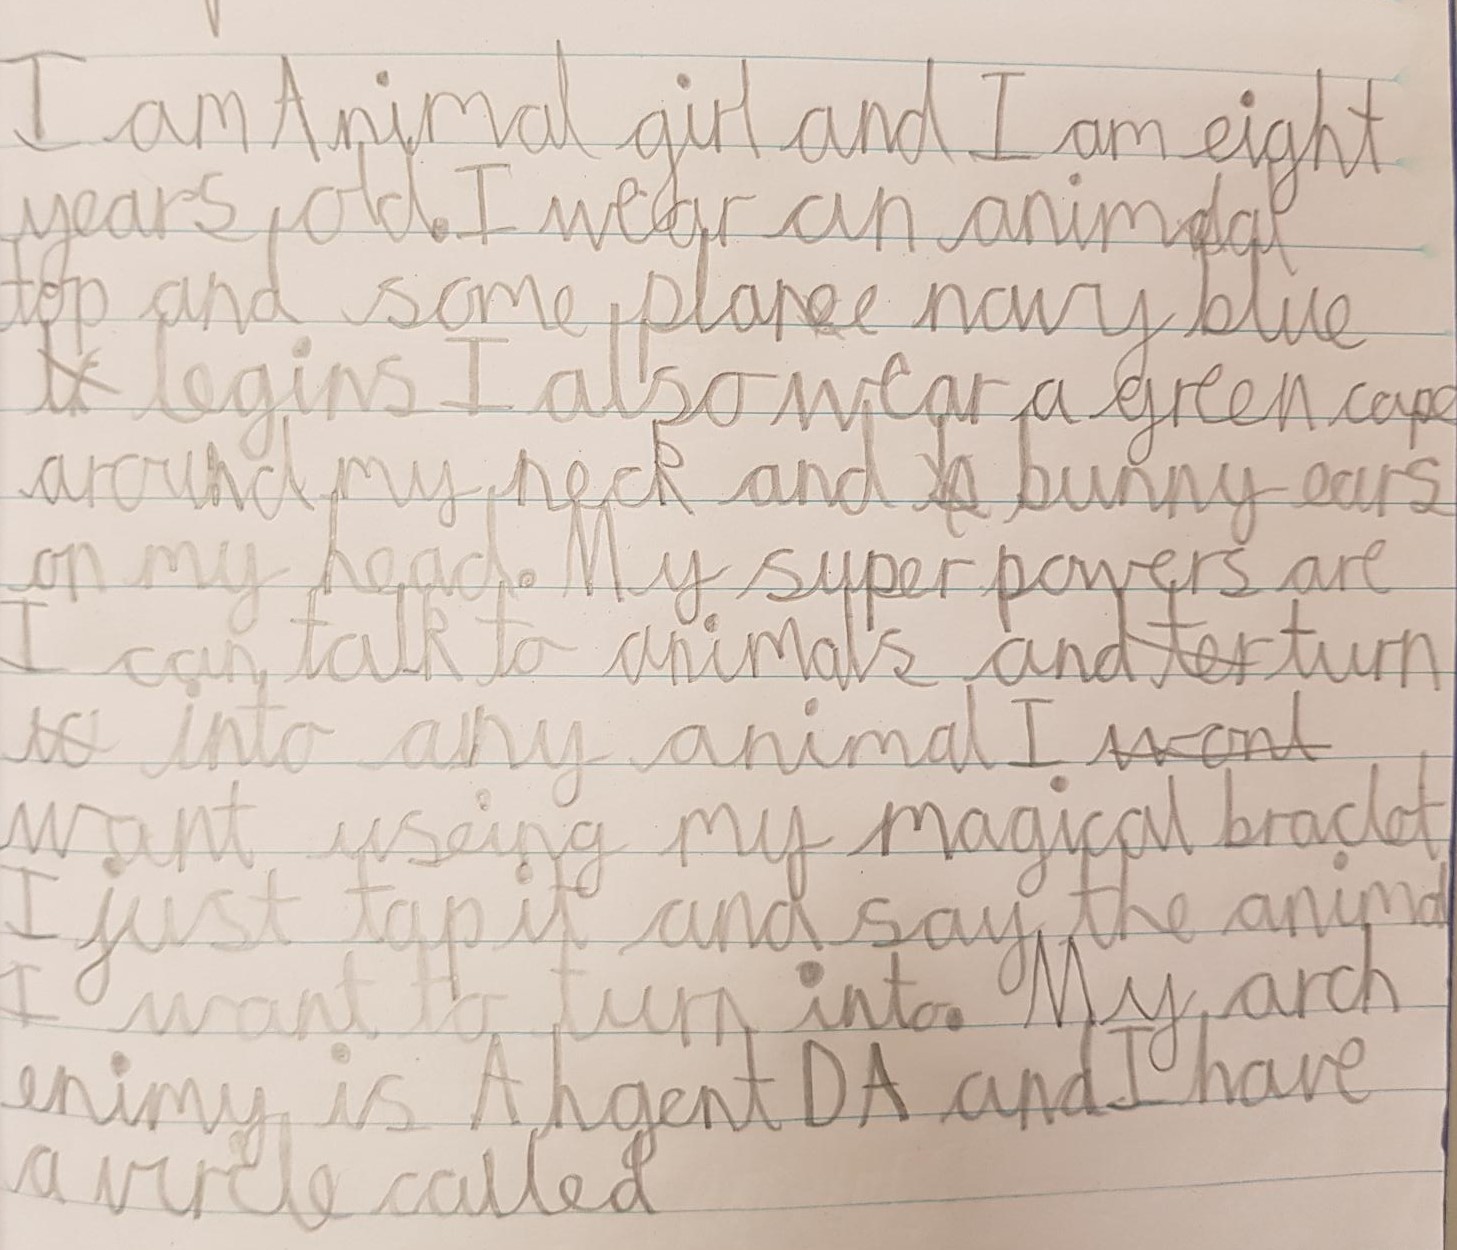 I am Animal girl and I am eight
years old. I wear an animal
top and some plane navy blue
legins I also wear a green cape
around my neck and bunny ears
on my head. My super powers are
I can talk to animals and ter turn
into any animal I want
want useing my magical braclet
I just tap it and say the animal
I want to turn into. My arch
enimy is Ahgent DA and I have
a called